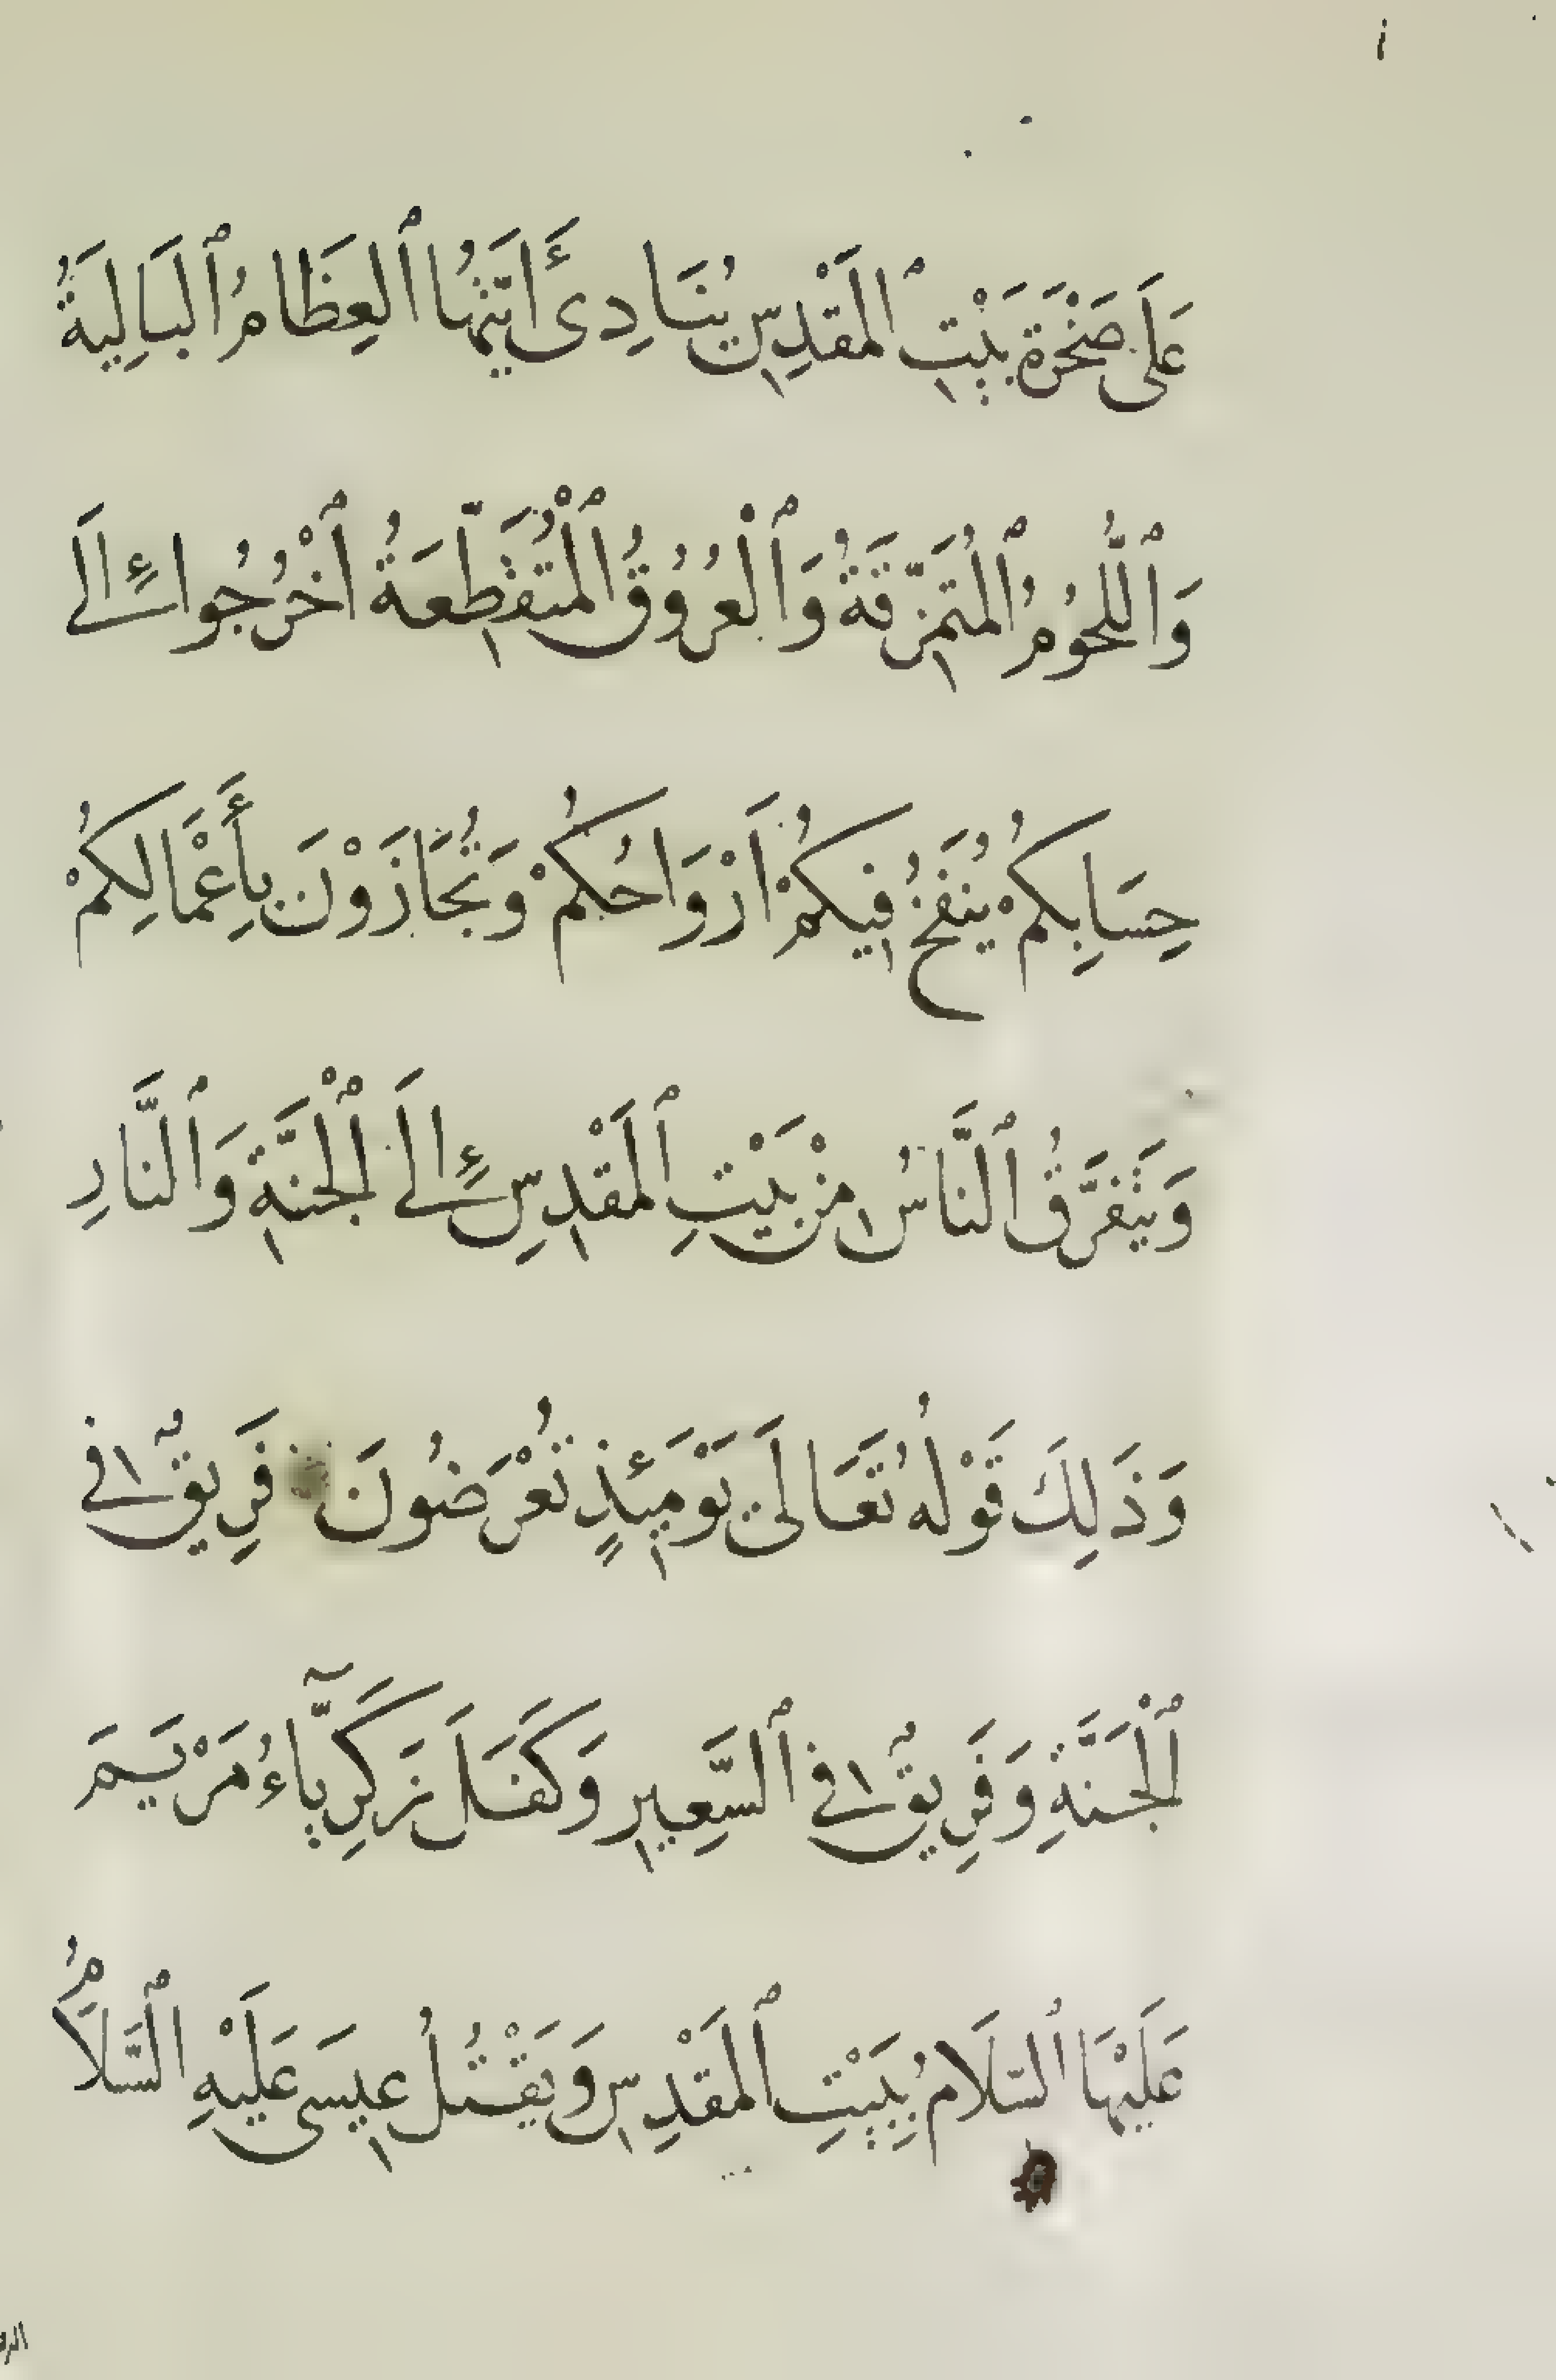 عَلَى صَخْرَةِ بَيْتِ ٱلْمَقْدِسِ يُنَادِى أَيَّتُهَا ٱلعِظَامُ ٱلبَالِيَةُ
وَٱللُّحُومُ ٱلمُتَمَزِّقَةُ وَٱلْعُرُوقُ ٱلْمُتَقَطِّعَةُ ٱخْرُجُوا إِلَى
حِسَابِكُمْ يُنْفَخُ فِيكُمْ اَرْوَاحُكُمْ وَتُجَازَوْنَ بِأَعْمَالِكُمْ
وَيَتَفَرَّقُ ٱلنَّاسُ مِنْ بَيْتِ ٱلمَقْدِسِ إِلَى ٱلْجَنَّةِ وَٱلنَّارِ
وَذَلِكَ قَوْلُهُ تَعَالَى يَوْمَئِذٍ تُعْرَضُونَ فَرِيقٌ فِى
ٱلْجَنَّةِ وَفَرِيقٌ فِى ٱلسَّعِيرِ وَكَفَلَ زَكَرِيَّآءُ مَرْيَمَ
عَلَيْهَا ٱلسَّلَامُ بِبَيْتِ ٱلمَقْدِسِ وَيَقْتُلُ عِيسَى عَلَيْهِ ٱلسَّلاَمُ